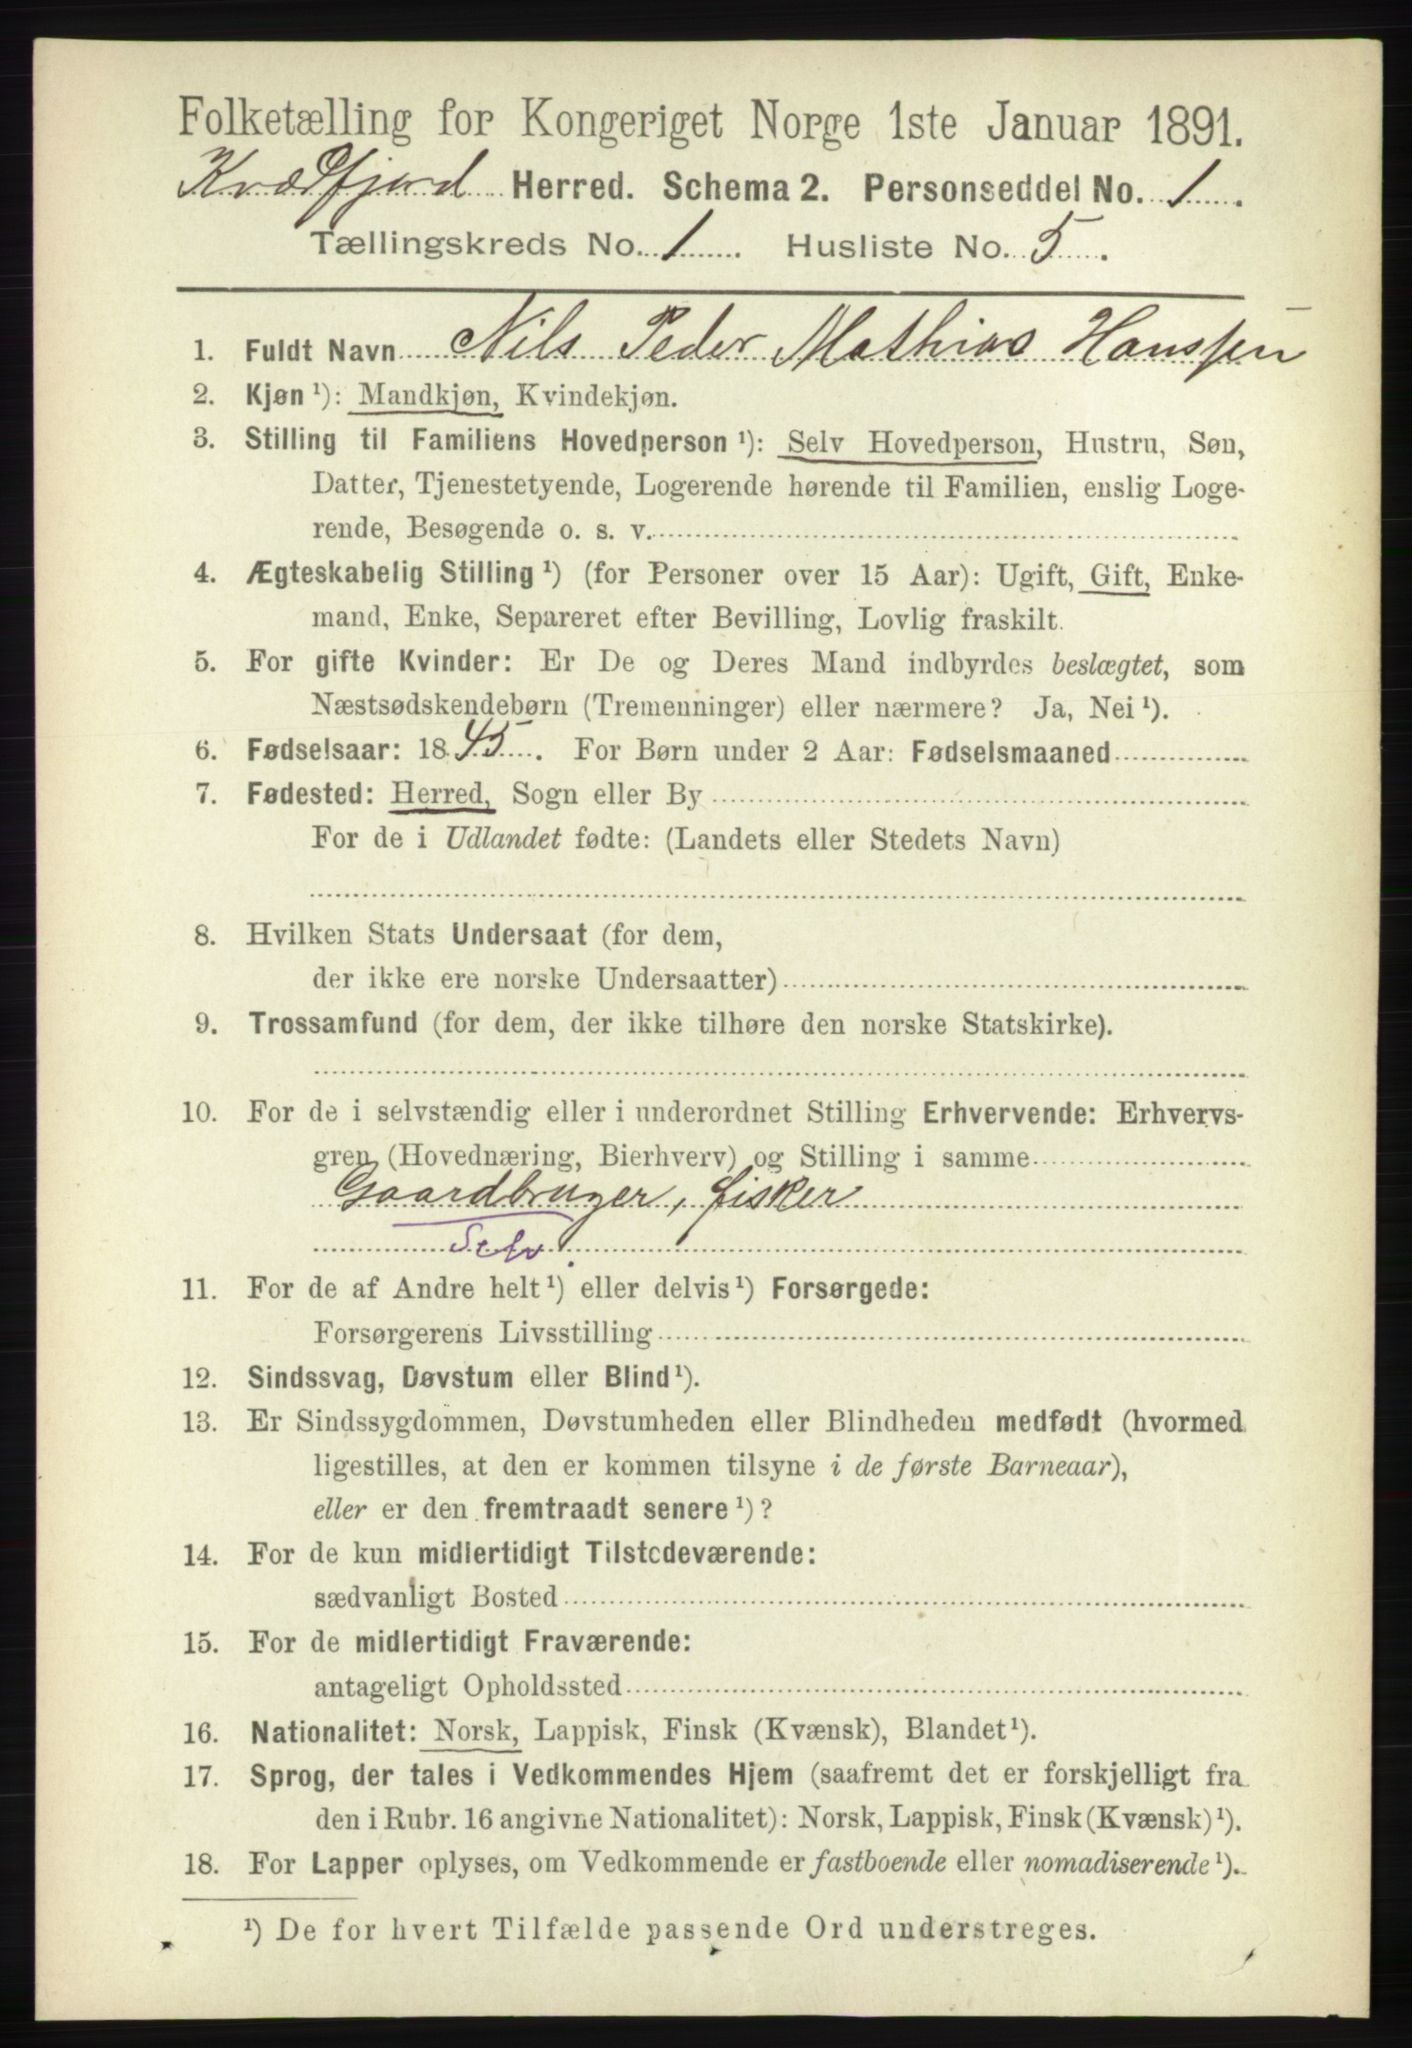 Folketælling for Kongeriget Norge 1ste Januar 1891.
Kvædfjord Herred. Schema 2. Personseddel No. 1.
Tællingskreds No. 1. Husliste No. 5.
1. Fuldt Navn Nils Peder Mathias Hanssen
2. Kjøn ¹): Mandkjøn, Kvindekjøn.
3. Stilling til Familiens Hovedperson ¹): Selv Hovedperson, Hustru, Søn,
Datter, Tjenestetyende, Logerende hørende til Familien, enslig Loge-
rende, Besøgende o. s. v.
4. Ægteskabelig Stilling ¹) (for Personer over 15 Aar): Ugift, Gift, Enke-
mand, Enke, Separeret efter Bevilling, Lovlig fraskilt.
5. For gifte Kvinder: Er De og Deres Mand indbyrdes beslægtet, som
Næstsødskendebørn (Tremenninger) eller nærmere? Ja, Nei ¹).
6. Fødselsaar: 1845. For Børn under 2 Aar: Fødselsmaaned
7. Fødested: Herred, Sogn eller By
For de i Udlandet fødte: (Landets eller Stedets Navn)
8. Hvilken Stats Undersaat (for dem,
der ikke ere norske Undersaatter)
9. Trossamfund (for dem, der ikke tilhøre den norske Statskirke).
10. For de i selvstændig eller i underordnet Stilling Erhvervende: Erhvervs-
gren (Hovednæring, Bierhverv) og Stilling i samme
Gaardbruger, fisker
Selv.
11. For de af Andre helt ¹) eller delvis ¹) Forsørgede:
Forsørgerens Livsstilling
12. Sindssvag, Døvstum eller Blind ¹).
13. Er Sindssygdommen, Døvstumheden eller Blindheden medfødt (hvormed
ligestilles, at den er kommen tilsyne i de første Barneaar),
eller er den fremtraadt senere ¹)?
14. For de kun midlertidigt Tilstedeværende:
sædvanligt Bosted
15. For de midlertidigt Fraværende:
antageligt Opholdssted
16. Nationalitet: Norsk, Lappisk, Finsk (Kvænsk), Blandet ¹).
17. Sprog, der tales i Vedkommendes Hjem (saafremt det er forskjelligt fra
den i Rubr. 16 angivne Nationalitet): Norsk, Lappisk, Finsk (Kvænsk) ¹).
18. For Lapper oplyses, om Vedkommende er fastboende eller nomadiserende ¹).
¹) De for hvert Tilfælde passende Ord understreges.